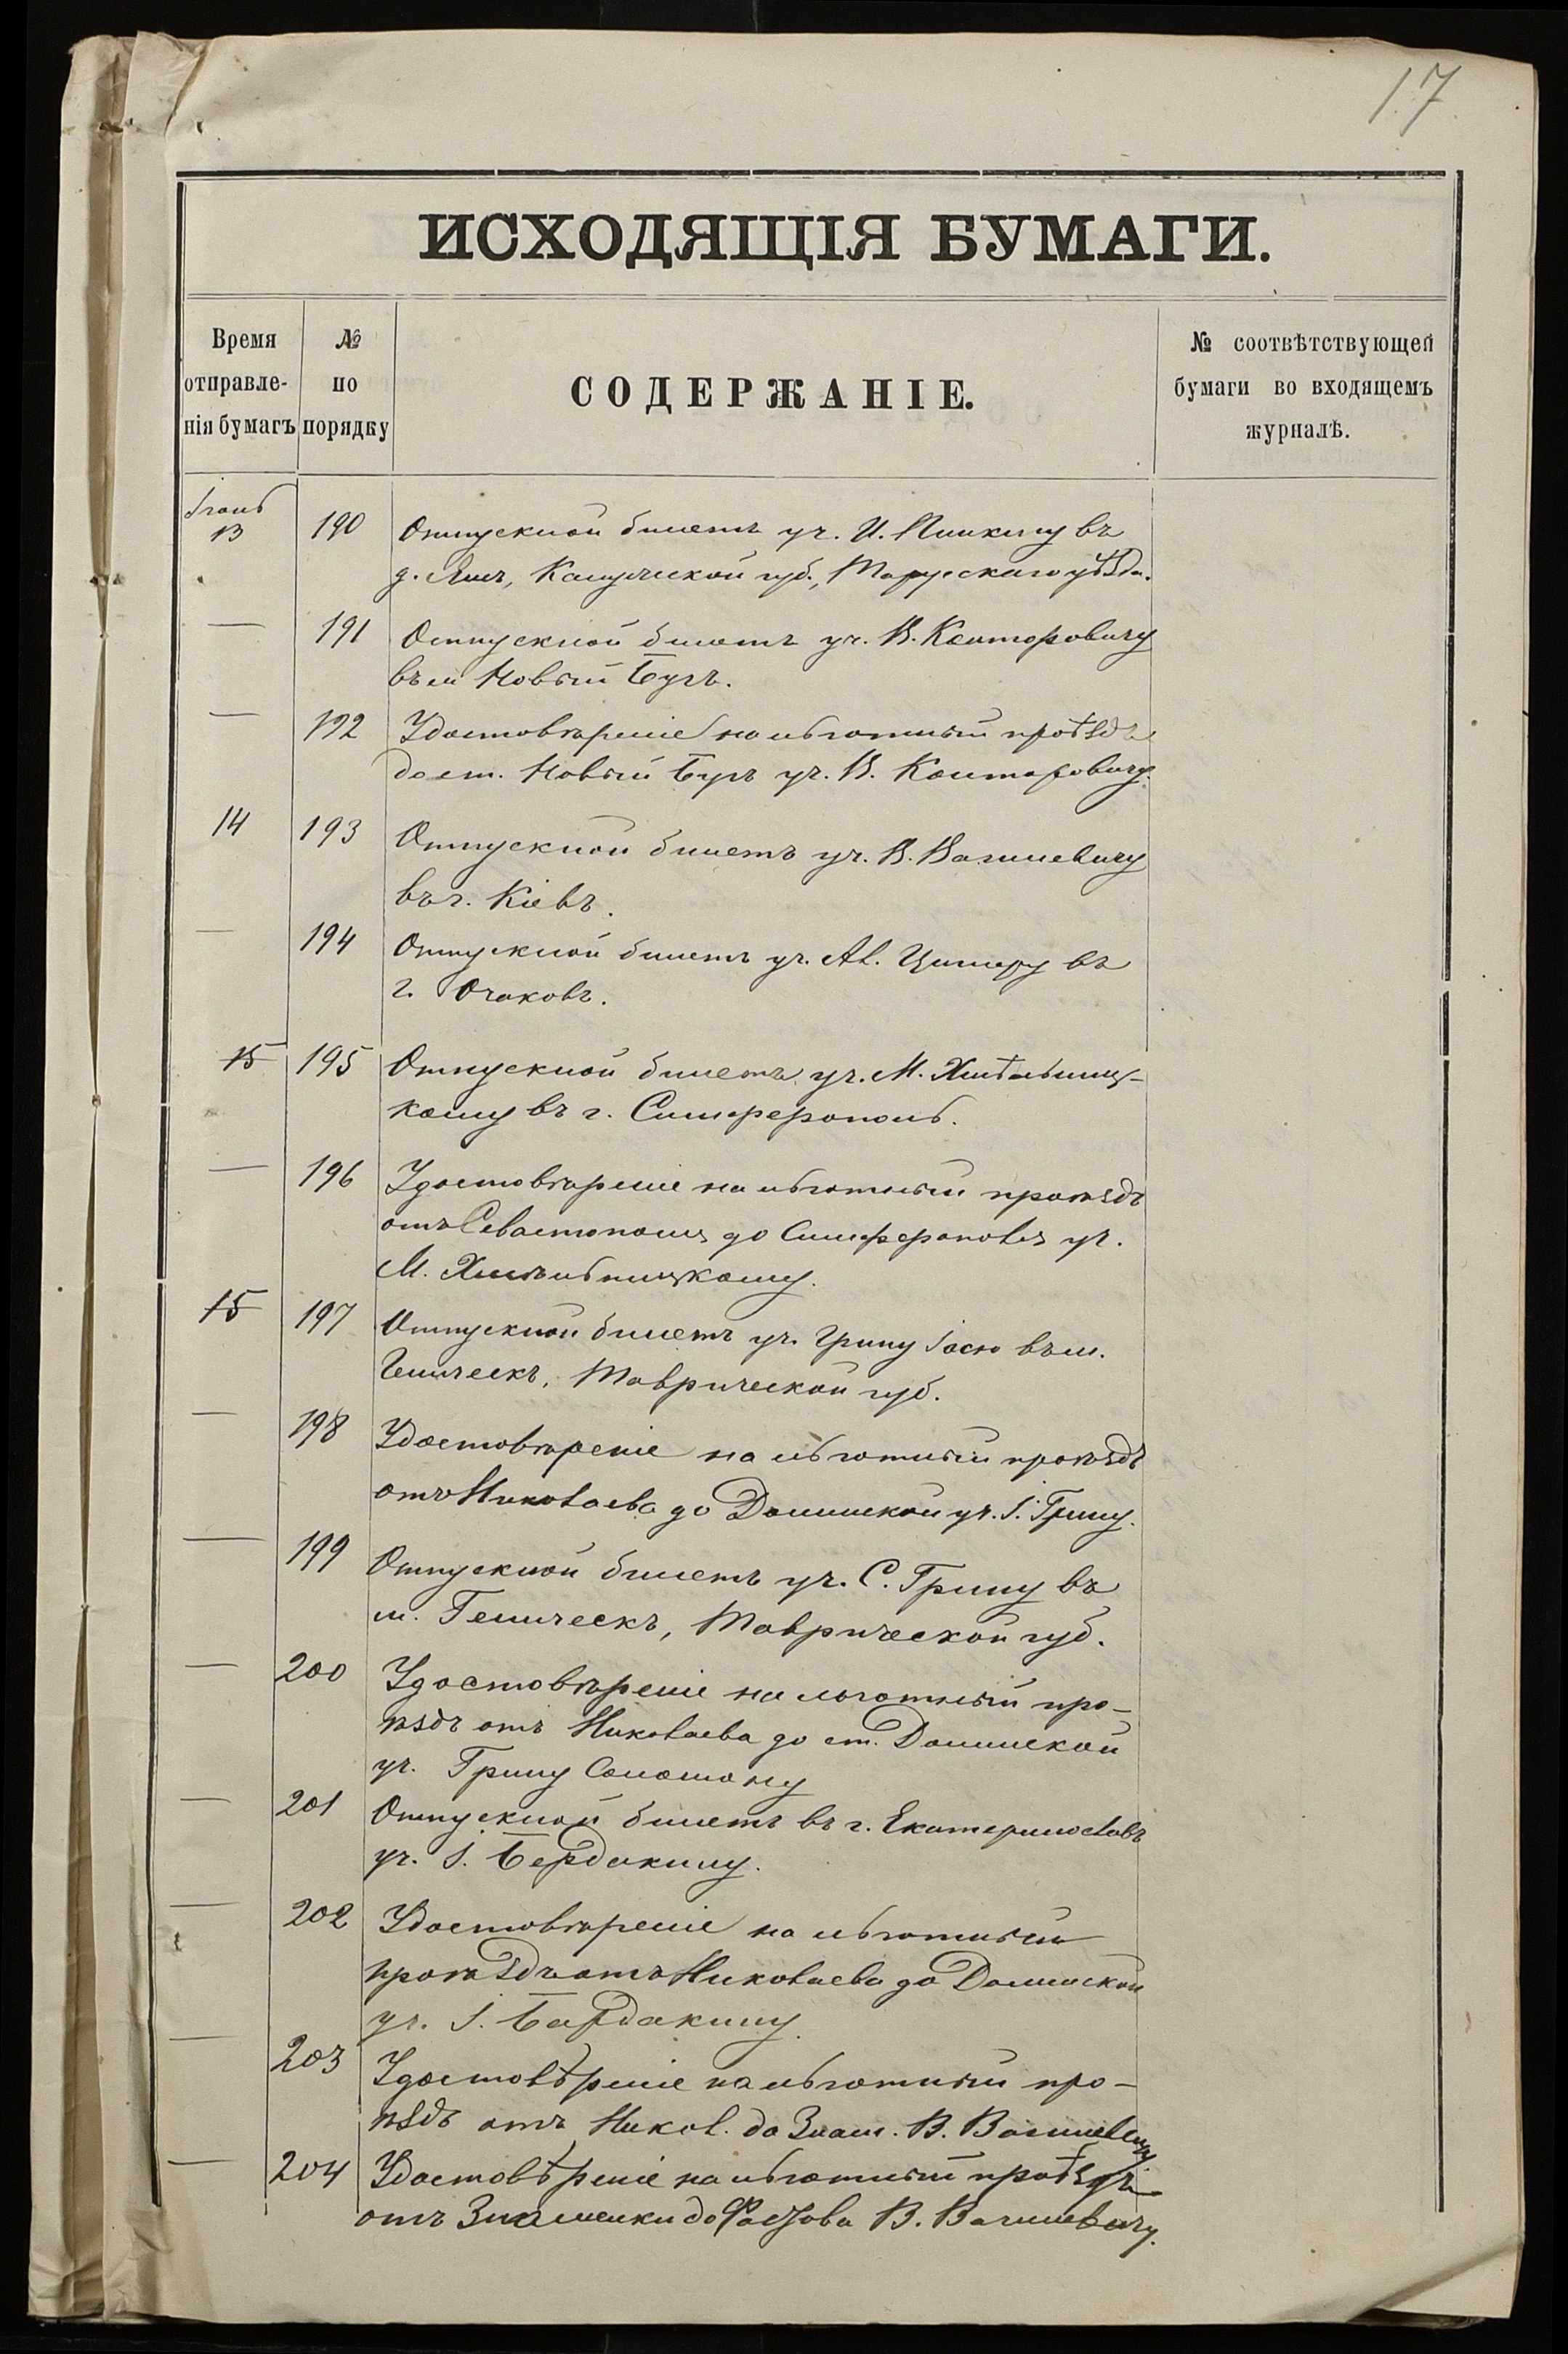 17
ИСХОДЯЩІЯ БУМАГИ.
Время
отправле-
нія бумагъ
№
по
порядку
СОДЕРЖАНІЕ.
№ соотвѣтствующей
бумаги во входящемъ
журналѣ.
Іюнь
13
190
Отпускной билетъ уч. И. Пикину въ
д. Калужской губ., Тарусскаго уѣзда.
—
191
Отпускной билетъ уч. В. Канторовичу
въ м Новый Бугъ.
—
192
Удостовѣреніе на льготный проѣздъ
до ст. Новый Бугъ уч. В. Канторовичу.
14
193
Отпускной билетъ уч. В. Вагилевичу
въ г. Кіевъ.
—
194
Отпускной билетъ уч. Ал. Циперу въ
г. Очаковъ.
15
195
Отпускной билетъ уч. М. Хмѣльниц-
кому въ г. Симферополь.
—
196
Удостовѣреніе на льготный проѣздъ
отъ Севастополя до Симферополя уч.
М. Хмѣльницкому.
15
197
Отпускной билетъ уч. Грину Іосю въ м.
Геническъ, Таврической губ.
—
198
Удостовѣреніе на льготный проѣздъ
отъ Николаева до Долинской уч. І. Грину.
—
199
Отпускной билетъ уч. С. Грину въ
м. Геническъ, Таврической губ.
—
200
Удостовѣреніе на льготный про-
ѣздъ отъ Николаева до ст. Долинской
уч. Грину Соломону
—
201
Отпускной билетъ въ г. Екатеринославъ
уч. І. Бердакину.
—
202
Удостовѣреніе на льготный
проѣздъ отъ Николаева до Долинской
уч. І. Бардакину.
—
203
Удостовѣреніе на льготный про-
ѣздъ отъ Никол. до Знам. В. Вагилевичу
—
204
Удостовѣреніе на льготный проѣздъ
отъ Знаменки до Фастова В. Вагилевичу.